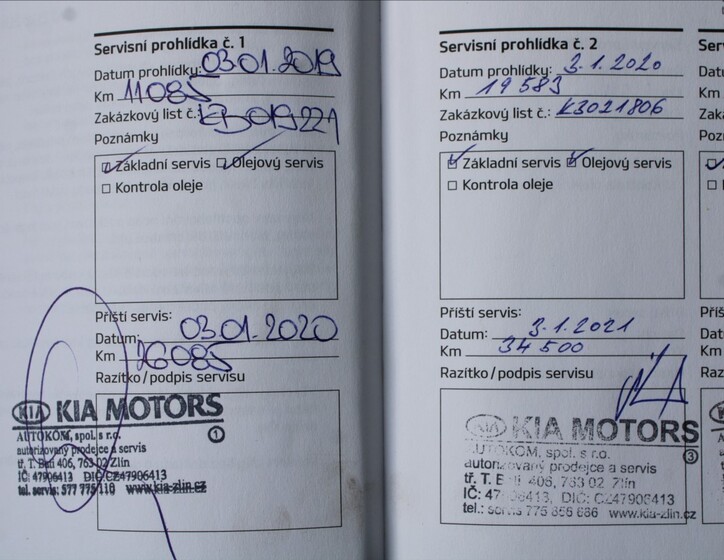 Servisní prohlídka č. 1
Datum prohlídky: 03.01.2019
Km 11085
Zakázkový list č.: KB019221
Poznámky
Základní servis Olejový servis
Kontrola oleje
Příští servis:
Datum: 03.01.2020
Km 26085
Razítko/podpis servisu
KIA KIA MOTORS
AUTOKOM, spol. s r.o. 1
autorizovaný prodejce a servis
tř. T. Bati 406, 763 02 Zlín
IČ: 47906413 DIČ: CZ47906413
tel. servis: 577 775 110 www.kia-zlin.cz
Servisní prohlídka č. 2
Datum prohlídky: 3.1.2020
Km 19 583
Zakázkový list č.: K3021806
Poznámky
Základní servis Olejový servis
Kontrola oleje
Příští servis:
Datum: 3.1.2021
Km 34 500
Razítko/podpis servisu
KIA KIA MOTORS
AUTOKOM, spol. s r.o. 3
autorizovaný prodejce a servis
tř. T. 406, 763 02 Zlín
IČ: 47 06413, DIČ: CZ47906413
tel.: 775 www.kia-zlin.cz
Serv
Datum
Km
Zakáz
Pozná
Příš
Dat
Km
Raz